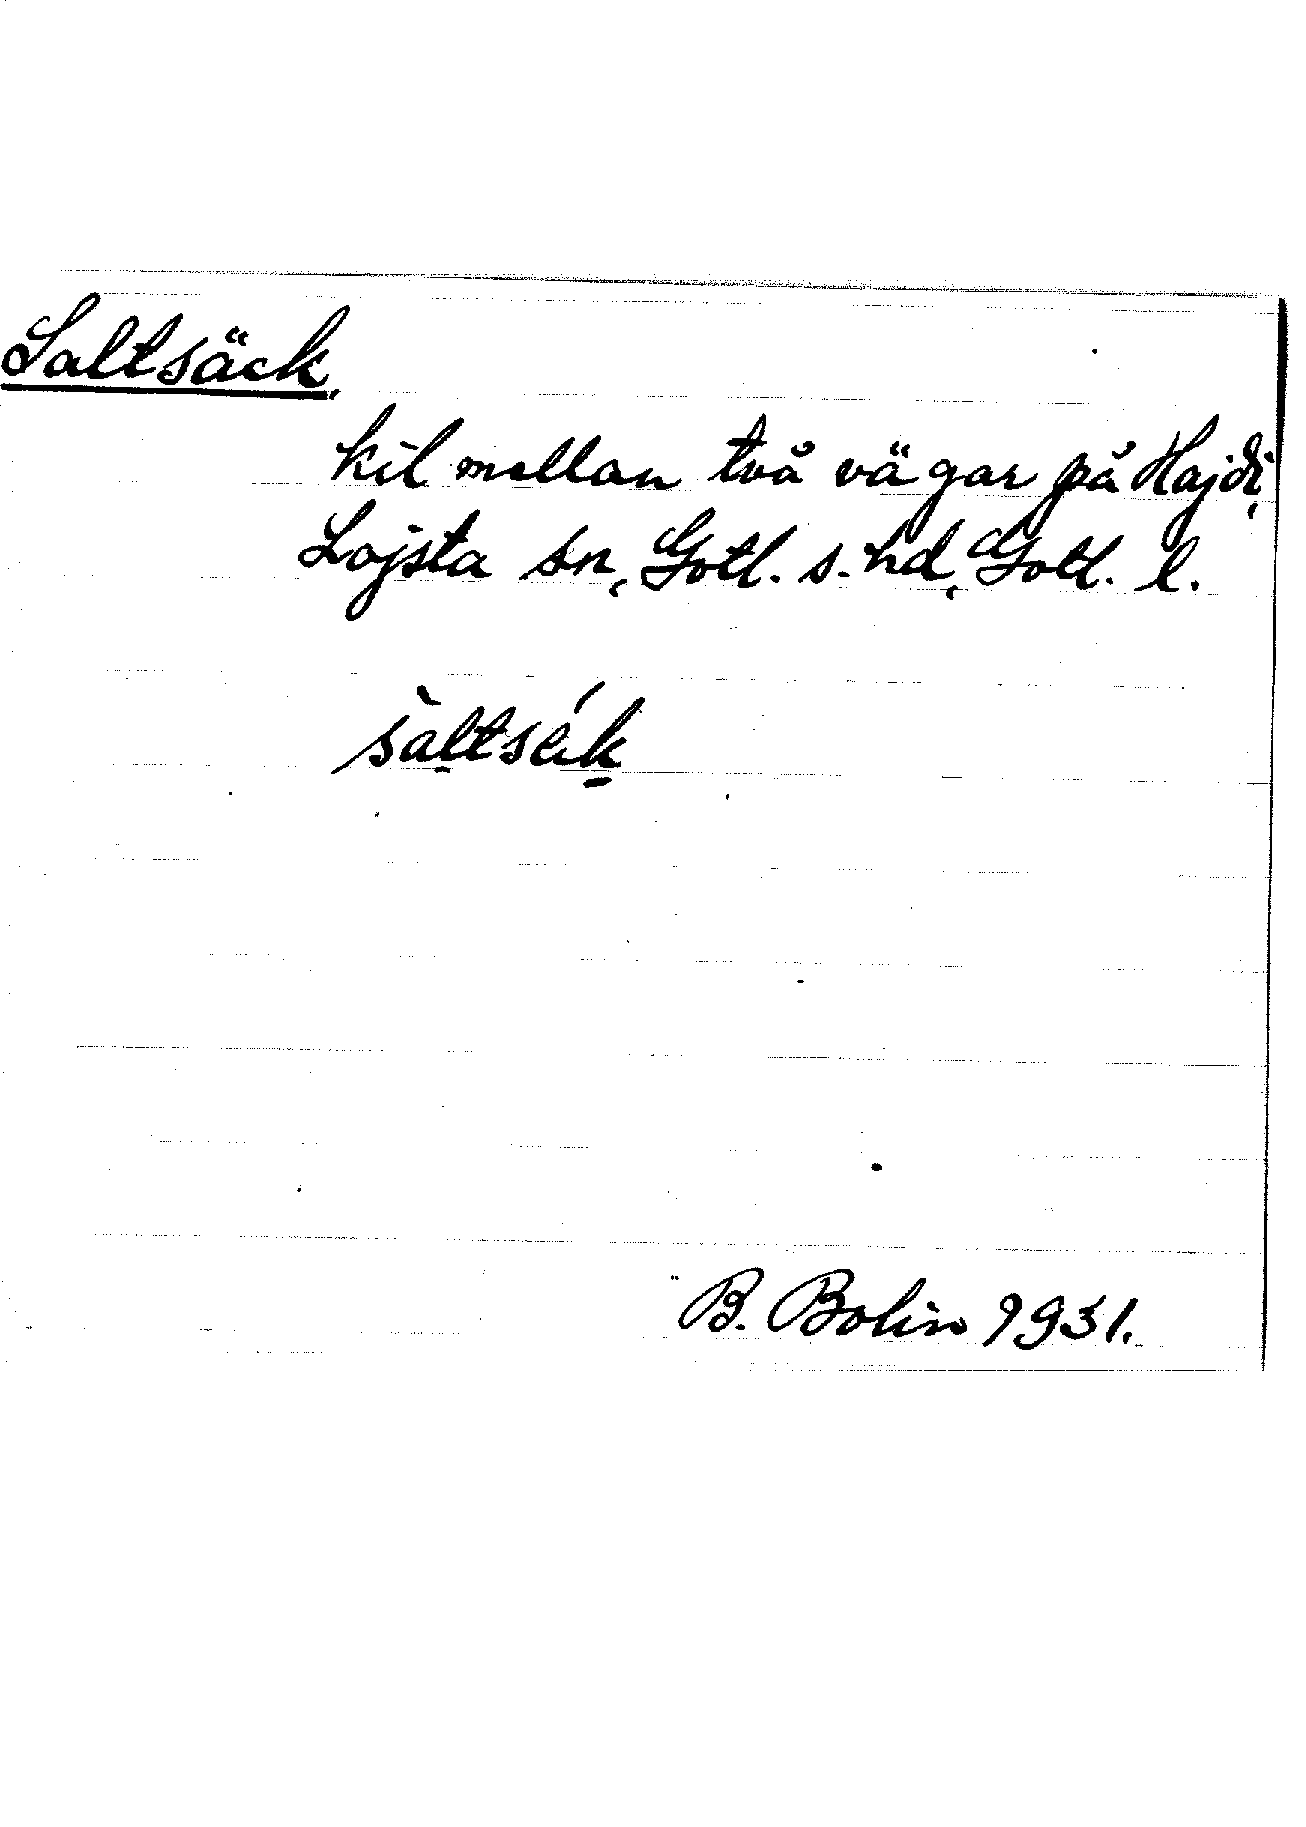 Saltsäck,
kil mellan två vägar på Hajdi,
Lojsta sn, Gotl. s. hd, Gotl. l.
sàltsék
B. Bolin 1931.